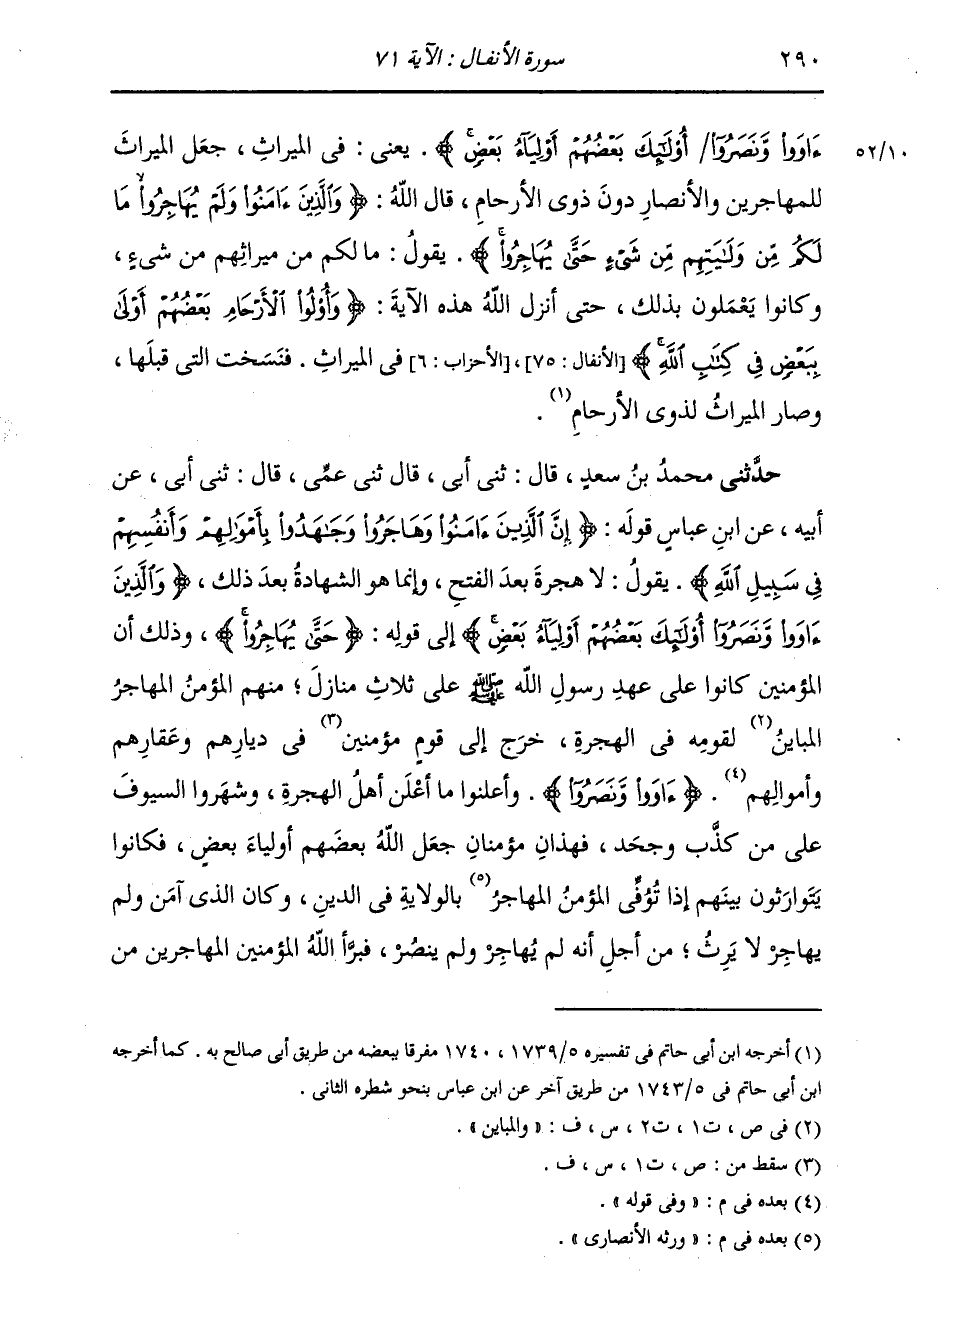 ٢٩٠ سورة الأنفال : الآية ٧١
٥٢/١٠ ءَاوَوا۟ وَّنَصَرُوٓا۟/ أُو۟لَـٰٓئِكَ بَعْضُهُمْ أَوْلِيَآءُ بَعْضٍۚ ﴾ . يعنى : فى الميراثِ ، جعَل الميراثَ
للمهاجرين والأنصارِ دونَ ذوى الأرحامِ ، قال اللَّهُ : ﴿ وَٱلَّذِينَ ءَامَنُوا۟ وَلَمْ يُهَاجِرُوا۟ مَا
لَكُم مِّن وَلَـٰيَتِهِم مِّن شَىْءٍ حَتَّىٰ يُهَاجِرُوا۟ۚ ﴾ . يقولُ : ما لكم من ميراثِهم من شىءٍ ،
وكانوا يَعْمَلون بذلك ، حتى أنزل اللَّهُ هذه الآيةَ : ﴿ وَأُو۟لُوا۟ ٱلْأَرْحَامِ بَعْضُهُمْ أَوْلَىٰ
بِبَعْضٍ فِى كِتَـٰبِ ٱللَّهِۚ ﴾ [الأنفال : ٧٥] ، [الأحزاب : ٦] فى الميراثِ . فنَسَخت التى قبلَها ،
وصار الميراثُ لذوى الأرحامِ(١) .
حدَّثنى محمدُ بنُ سعدٍ ، قال : ثنى أبى ، قال ثنى عمِّى ، قال : ثنى أبى ، عن
أبيه ، عن ابنِ عباسٍ قولَه : ﴿ إِنَّ ٱلَّذِينَ ءَامَنُوا۟ وَهَاجَرُوا۟ وَجَـٰهَدُوا۟ بِأَمْوَٰلِهِمْ وَأَنفُسِهِمْ
فِى سَبِيلِ ٱللَّهِ ﴾ . يقولُ : لا هجرةَ بعدَ الفتحِ ، وإنما هو الشهادةُ بعدَ ذلك ، ﴿ وَٱلَّذِينَ
ءَاوَوا۟ وَّنَصَرُوٓا۟ أُو۟لَـٰٓئِكَ بَعْضُهُمْ أَوْلِيَآءُ بَعْضٍۚ ﴾ إلى قولِه : ﴿ حَتَّىٰ يُهَاجِرُوا۟ۚ ﴾ ، وذلك أن
المؤمنين كانوا على عهدِ رسولِ اللَّه ﷺ على ثلاثِ منازلَ ؛ منهم المؤمنُ المهاجرُ
المباينُ(٢) لقومِه فى الهجرةِ ، خرَج إلى قومٍ مؤمنين(٣) فى ديارِهم وعَقارِهم
وأموالِهم(٤) . ﴿ ءَاوَوا۟ وَّنَصَرُوٓا۟ ﴾ . وأعلنوا ما أعْلَن أهلُ الهجرةِ ، وشهَروا السيوفَ
على من كذَّب وجحَد ، فهذانِ مؤمنانِ جعَل اللَّهُ بعضَهم أولياءَ بعضٍ ، فكانوا
يَتَوارَثون بينَهم إذا تُوُفِّى المؤمنُ المهاجرُ(٥) بالولايةِ فى الدينِ ، وكان الذى آمَن ولم
يهاجِرْ لا يَرِثُ ؛ من أجلِ أنه لم يُهاجِرْ ولم ينصُرْ ، فبرَّأ اللَّهُ المؤمنين المهاجرين من
(١) أخرجه ابن أبى حاتم فى تفسيره ١٧٣٩/٥ ، ١٧٤٠ مفرقا ببعضه من طريق أبى صالح به . كما أخرجه
ابن أبى حاتم فى ١٧٤٣/٥ من طريق آخر عن ابن عباس بنحو شطره الثانى .
(٢) فى ص ، ت١ ، ت٢ ، س ، ف : « والمباين » .
(٣) سقط من : ص ، ت١ ، س ، ف .
(٤) بعده فى م : « وفى قوله » .
(٥) بعده فى م : « ورثه الأنصارى » .